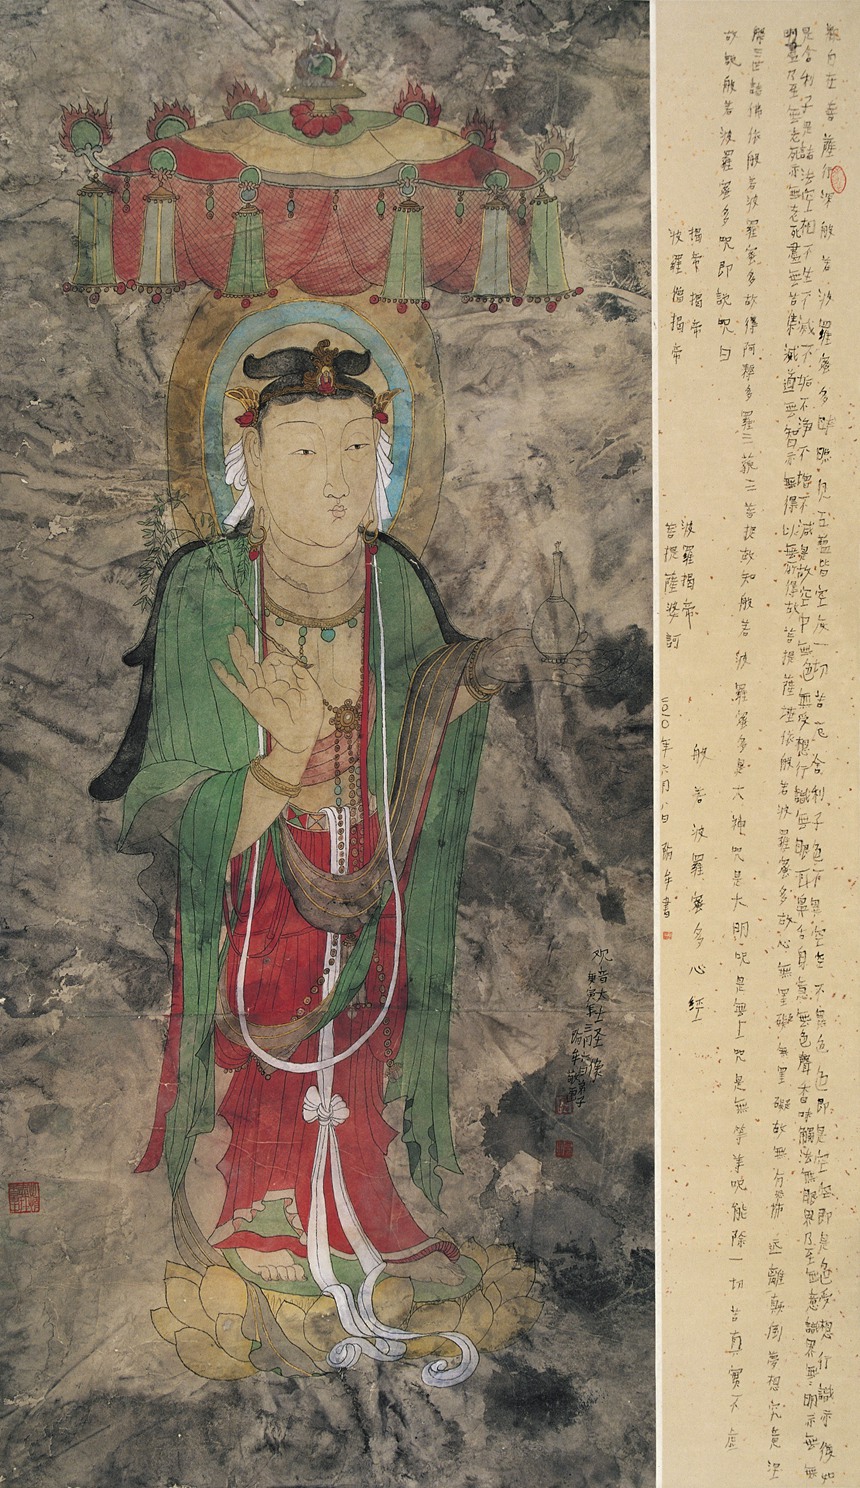 觀自在菩薩行深般若波羅蜜多時照見五蘊皆空度一切苦厄舍利子色不異空空不異色色即是空空即是色受想行識亦復如
是舍利子是諸法空相不生不滅不垢不淨不增不減是故空中無色無受想行識無眼耳鼻舌身意無色聲香味觸法無眼界乃至無意識界無無明亦無無
明盡乃至無老死亦無老死盡無苦集滅道無智亦無得以無所得故菩提薩埵依般若波羅蜜多故心無罣礙無罣礙故無有恐怖遠離顛倒夢想究竟涅
槃三世諸佛依般若波羅蜜多故得阿耨多羅三藐三菩提故知般若波羅蜜多是大神咒是大明咒是無上咒是無等等咒能除一切苦真實不虛
故說般若波羅蜜多咒即說咒曰
揭帝揭帝
波羅揭帝
波羅僧揭帝
菩提薩婆訶
般若波羅蜜多心經
二〇一〇年六月八日
书
观音大士圣像
庚寅年三月六日弟子
敬画